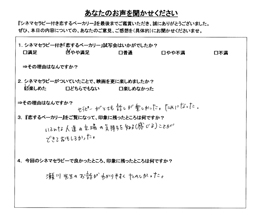 あなたのお声を聞かせください
『シネマセラピー付き恋するベーカリー』を最後までご鑑賞いただき、誠にありがとうございました。
ぜひ、本日の内容についての、あなたのご意見、ご感想を(具体的に)お聞かせくださいませ。
1. シネマセラピー付き『恋するベーカリー』試写会はいかがでしたか?
□満足 ☑やや満足 □普通 □やや不満 □不満
⇒その理由はなんですか?
2. シネマセラピーがついていたことで、映画を更に楽しめましたか?
☑楽しめた □どちらでもない □楽しめなかった
⇒その理由はなんですか?
セラピーがとても話しが楽しかった。ためになった。
3. 『恋するベーカリー』をご覧になって、印象に残ったところは何ですか?
いろんな人達の立場の気持を知る(感じる)ことが
できておもしろかった。
4. 今回のシネマセラピーで良かったところ、印象に残ったところは何ですか?
瀬川先生のお話がわかりやすくたのしかった。